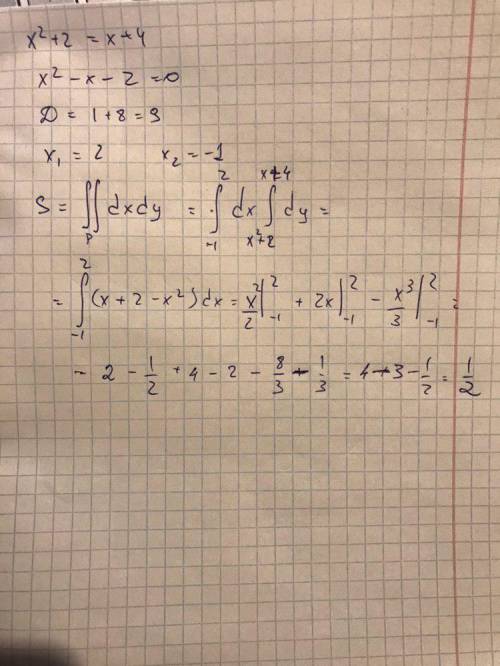 x² + 2 = x + 4
x² - x - 2 = 0
D = 1 + 8 = 9
x₁ = 2 x₂ = -1
S = ∬_D dxdy = ∫_{-1}^{2} dx ∫_{x²+2}^{x+4} dy =
= ∫_{-1}^{2} (x + 2 - x²) dx = x²/2 |_{-1}^{2} + 2x |_{-1}^{2} - x³/3 |_{-1}^{2} =
= 2 - 1/2 + 4 - 2 - 8/3 - 1/3 = 4 - 3 - 1/2 = 1/2